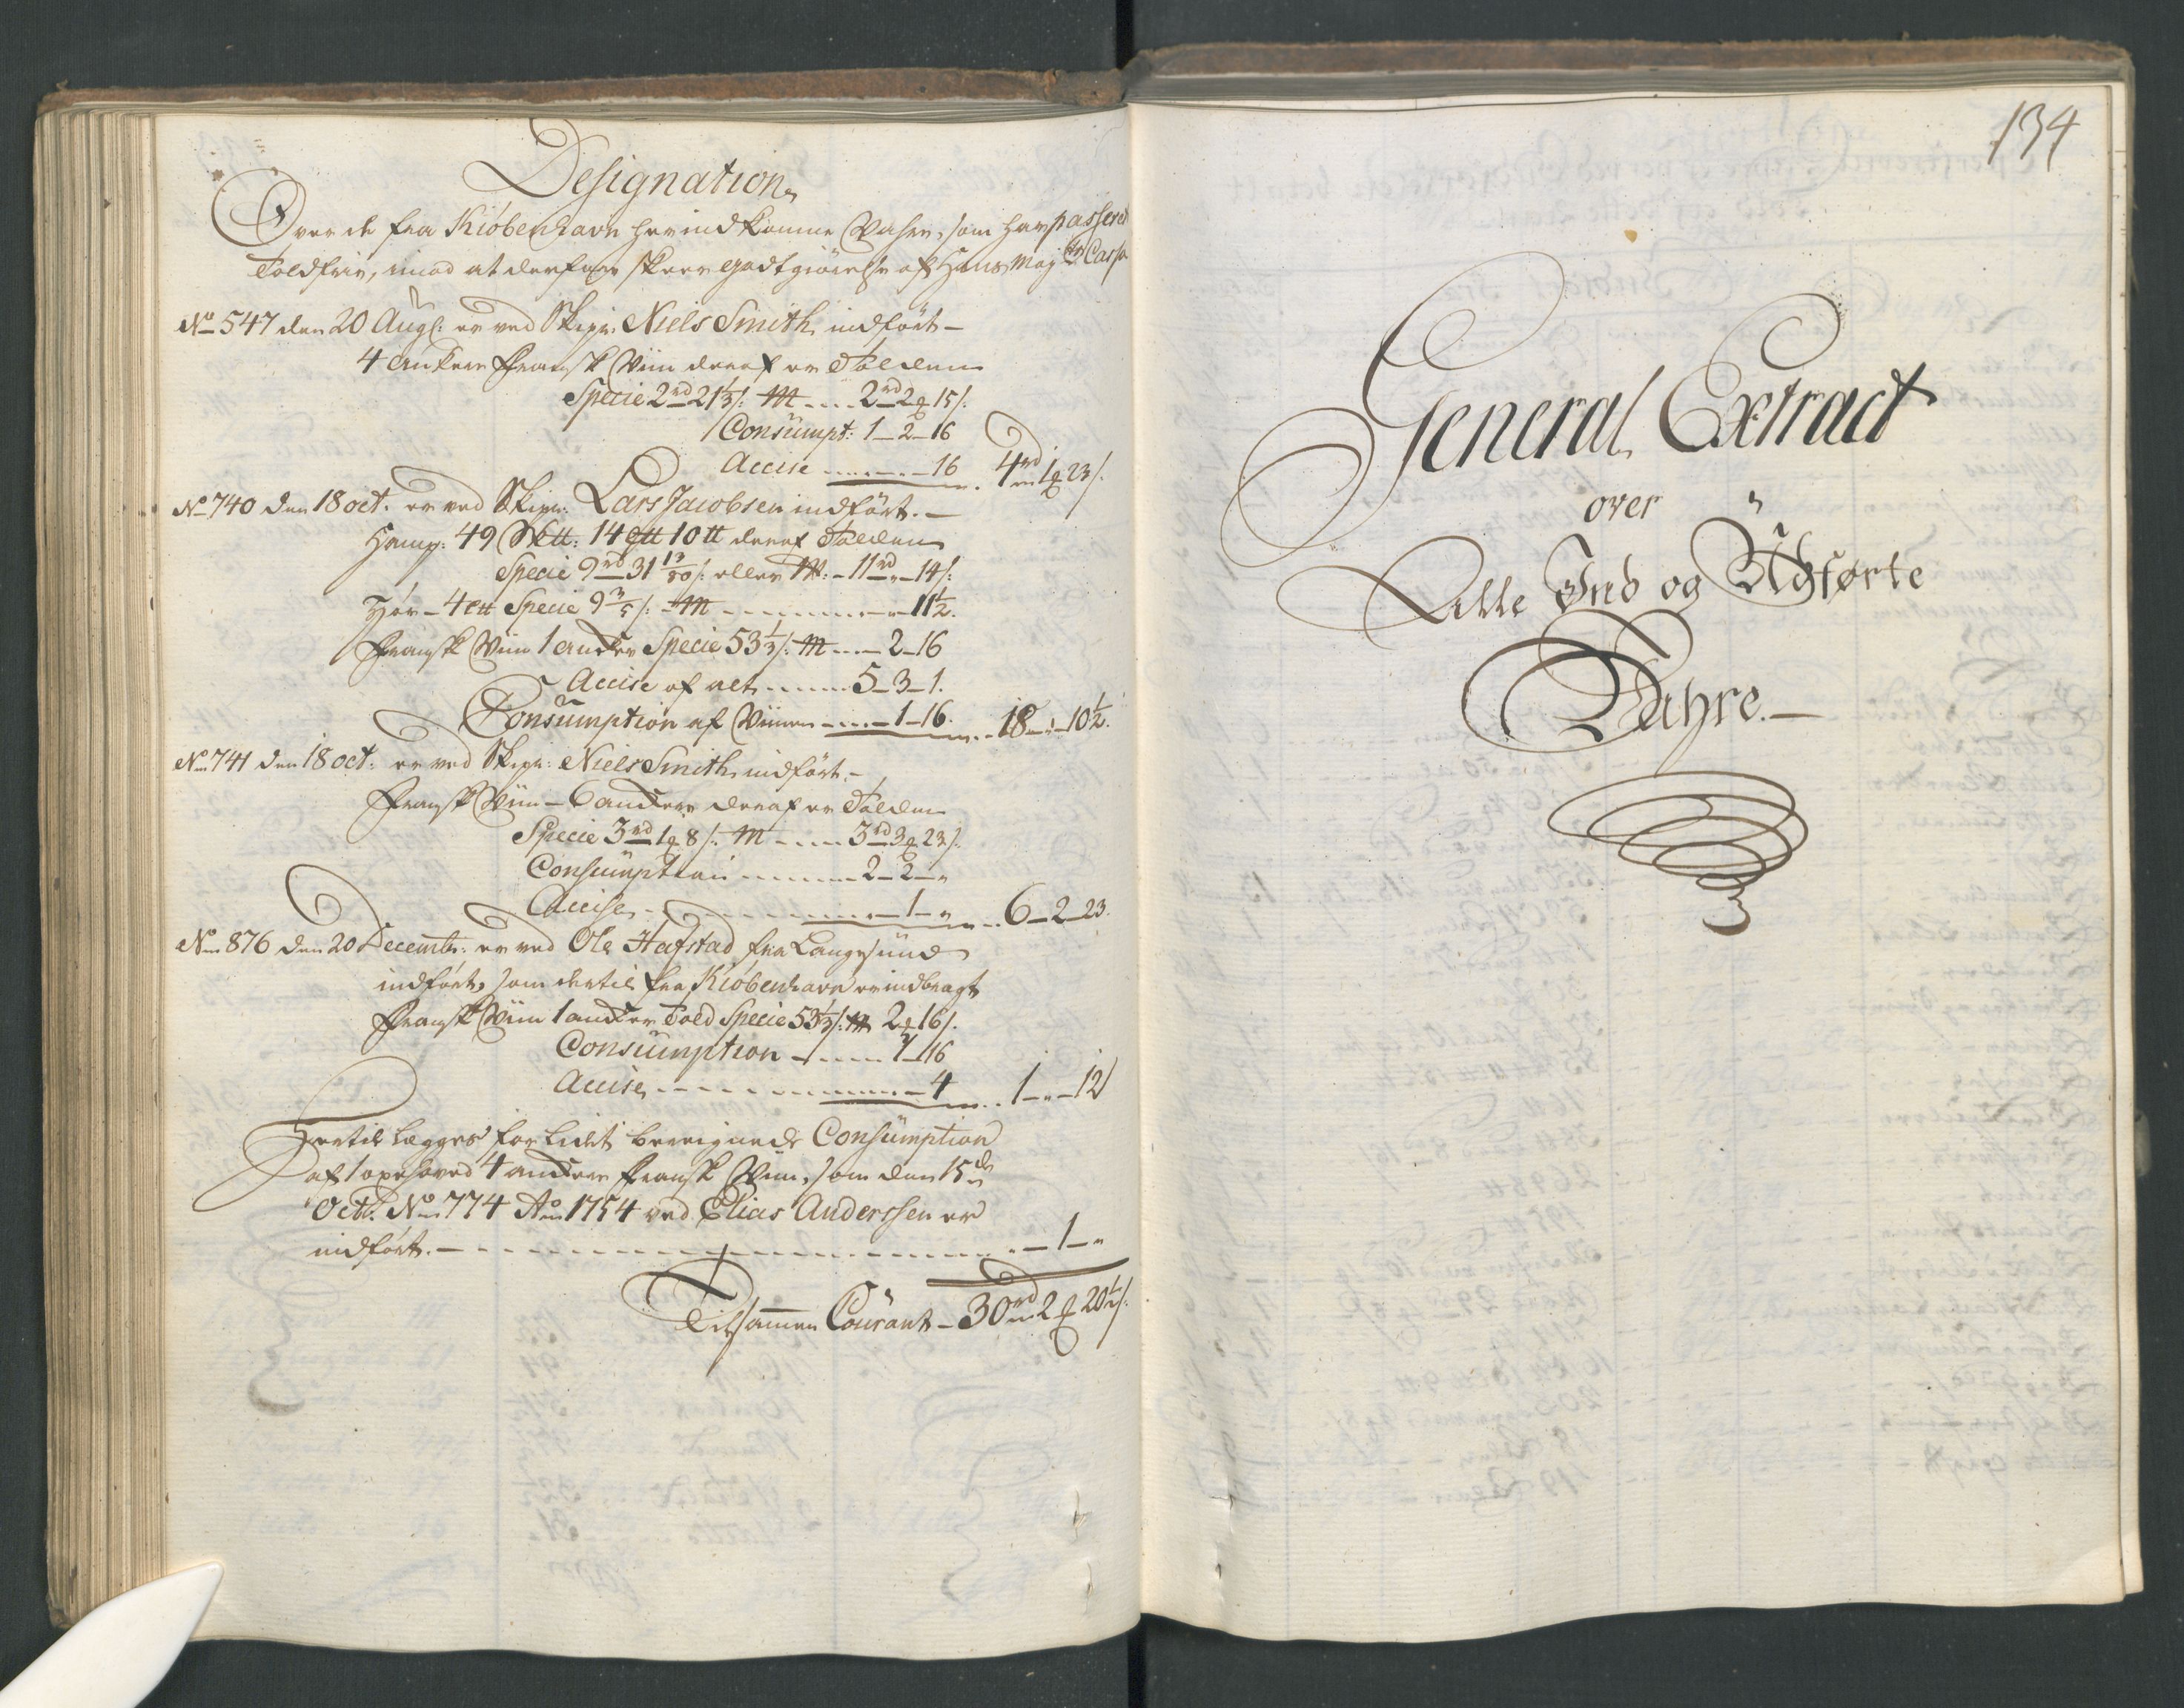 Designation
Over de fra Kiöbenhavn her indkomne Vahre, som har passeret
Toldfrie, imod at derfore skeer godtgiörelse af Hans Maj:ts Cassa
No 547 den 20 Aug: er ved Skipr: Niels Smith indfört –
4 ankere Fransk Viin deraf er Tolden
Specie 2rd 21⅓ s: – – 2rd 2 15 s:
Consumpt: 1 – 2 – 16
Accise – – – 16 4rd 1 23 s:
No 740 den 18 oct: er ved Skipr: Lars Jacobsen indfört. –
Hamp: 49 14 10 deraf Tolden
Specie 9rd 31 13/20 s: eller – 11rd „ – 14 s:
Hör – 4 Specie 9 3/5 s: – – – 11½.
Fransk Viin 1 ancker Specie 53⅓ s: – – 2 – 16
Accise af alt – – – 5 – 3 – 1.
Consumption af Viinen – – – 1 – 16. – 18 – „ – 10½.
No 741 den 18 oct: er ved Skipr: Niels Smith indfört –
Fransk Viin – 6 anckere deraf er Tolden
Specie 3rd 1 8 s: – – – 3rd 3 23 s:
Consumption – – – 2 – 2 – „
Accise – – – 1 – „ – 6 – 2 – 23.
No 876 den 20 Decembr: er ved Ole Hafstad fra Langesund
indfört, som dertil fra Kiöbenhavn er indbragt
Fransk Viin 1 ancker Told Specie 53⅓ s: 2 16 s.
Consumption – – – 1 – 16
Accise – – – 4 – 1 – „ – 12
Hertil lægges for lidet beregnede Consumption
af 1 oxehoved 4 anckere Fransk Viin, som den 15de
Octbr. No 774 Ao 1754 ved Elias Anderssen er
indfört. – – – 1 – „
Tilsammen Courant – 30rd 2 20½ s:
134
General Extract
over
Alle Ind og Udførte
Vahre. –